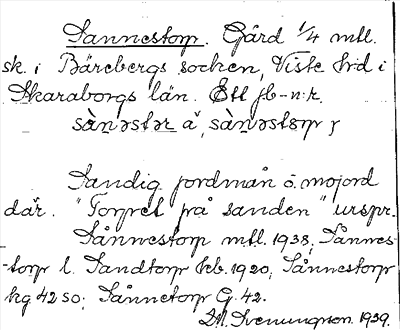 Sannestorp. Gård 1/4 mtl.
sk. i Bärebergs socken, Viste hrd i
Skaraborgs län. Ett jb-n:r.
sànəstər å, sànəstorp
Sandig jordmån o. mojord
där. "Torpet på sanden" urspr.
Sånnestorp mtl. 1938; Sånnes-
-torp l. Sandtorp kb. 1920; Sånnestorp
hg 42 SO; Sånnetorp G. 42.
Svenungson. 1939.